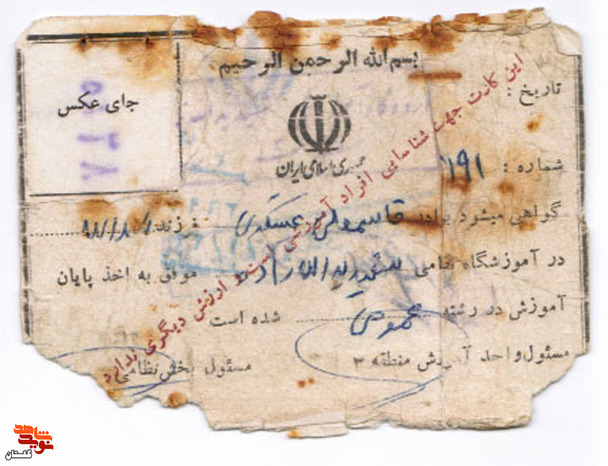 بسم الله الرحمن الرحیم
جای عکس
تاریخ :
جمهوری اسلامی ایران
شماره : ۱۹۱
گواهی میشود برادر عسگری
در آموزشگاه نظامی موفق به اخذ پایان
آموزش در رشته عمومی شده است
مسئول واحد آموزش منطقه ۳ مسئول بخش نظامی
این کارت جهت شناسایی افراد آموزشی است و ارزش دیگری ندارد
شاهد
نوید
گلستان